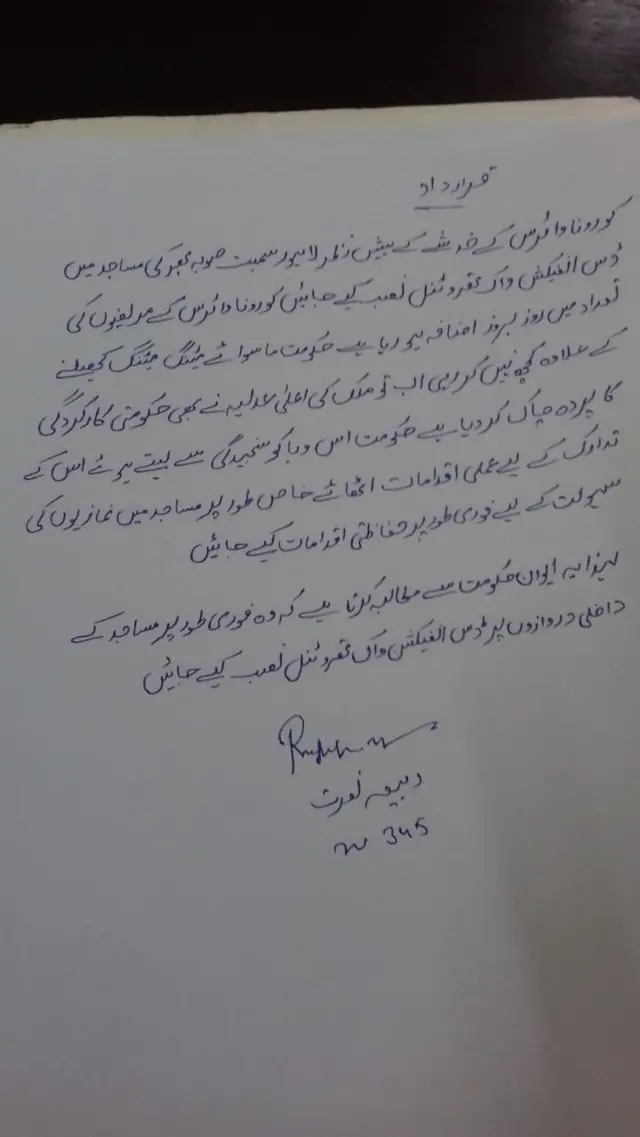 قرارداد
کورونا وائرس کے خدشے کے پیش نظر لاہور سمیت صوبہ بھر کی مساجد میں
ڈس انفیکشن واک تھرو ٹنل نصب کیے جائیں کورونا وائرس کے مریضوں کی
تعداد میں روز بروز اضافہ ہو رہا ہے حکومت ماسوائے میٹنگ میٹنگ کھیلنے
کے علاوہ کچھ نہیں کر رہی اب تو ملک کی اعلیٰ عدلیہ نے بھی حکومتی کارکردگی
کا پردہ چاک کر دیا ہے حکومت اس وبا کو سنجیدگی سے لیتے ہوئے اس کے
تدارک کے لیے عملی اقدامات اٹھائے خاص طور پر مساجد میں نمازیوں کی
سہولت کے لیے فوری طور پر حفاظتی اقدامات کیے جائیں
لہذا یہ ایوان حکومت سے مطالبہ کرتا ہے کہ وہ فوری طور پر مساجد کے
داخلی دروازوں پر ڈس انفیکشن واک تھرو ٹنل نصب کیے جائیں
ربیعہ نصرت
W 345